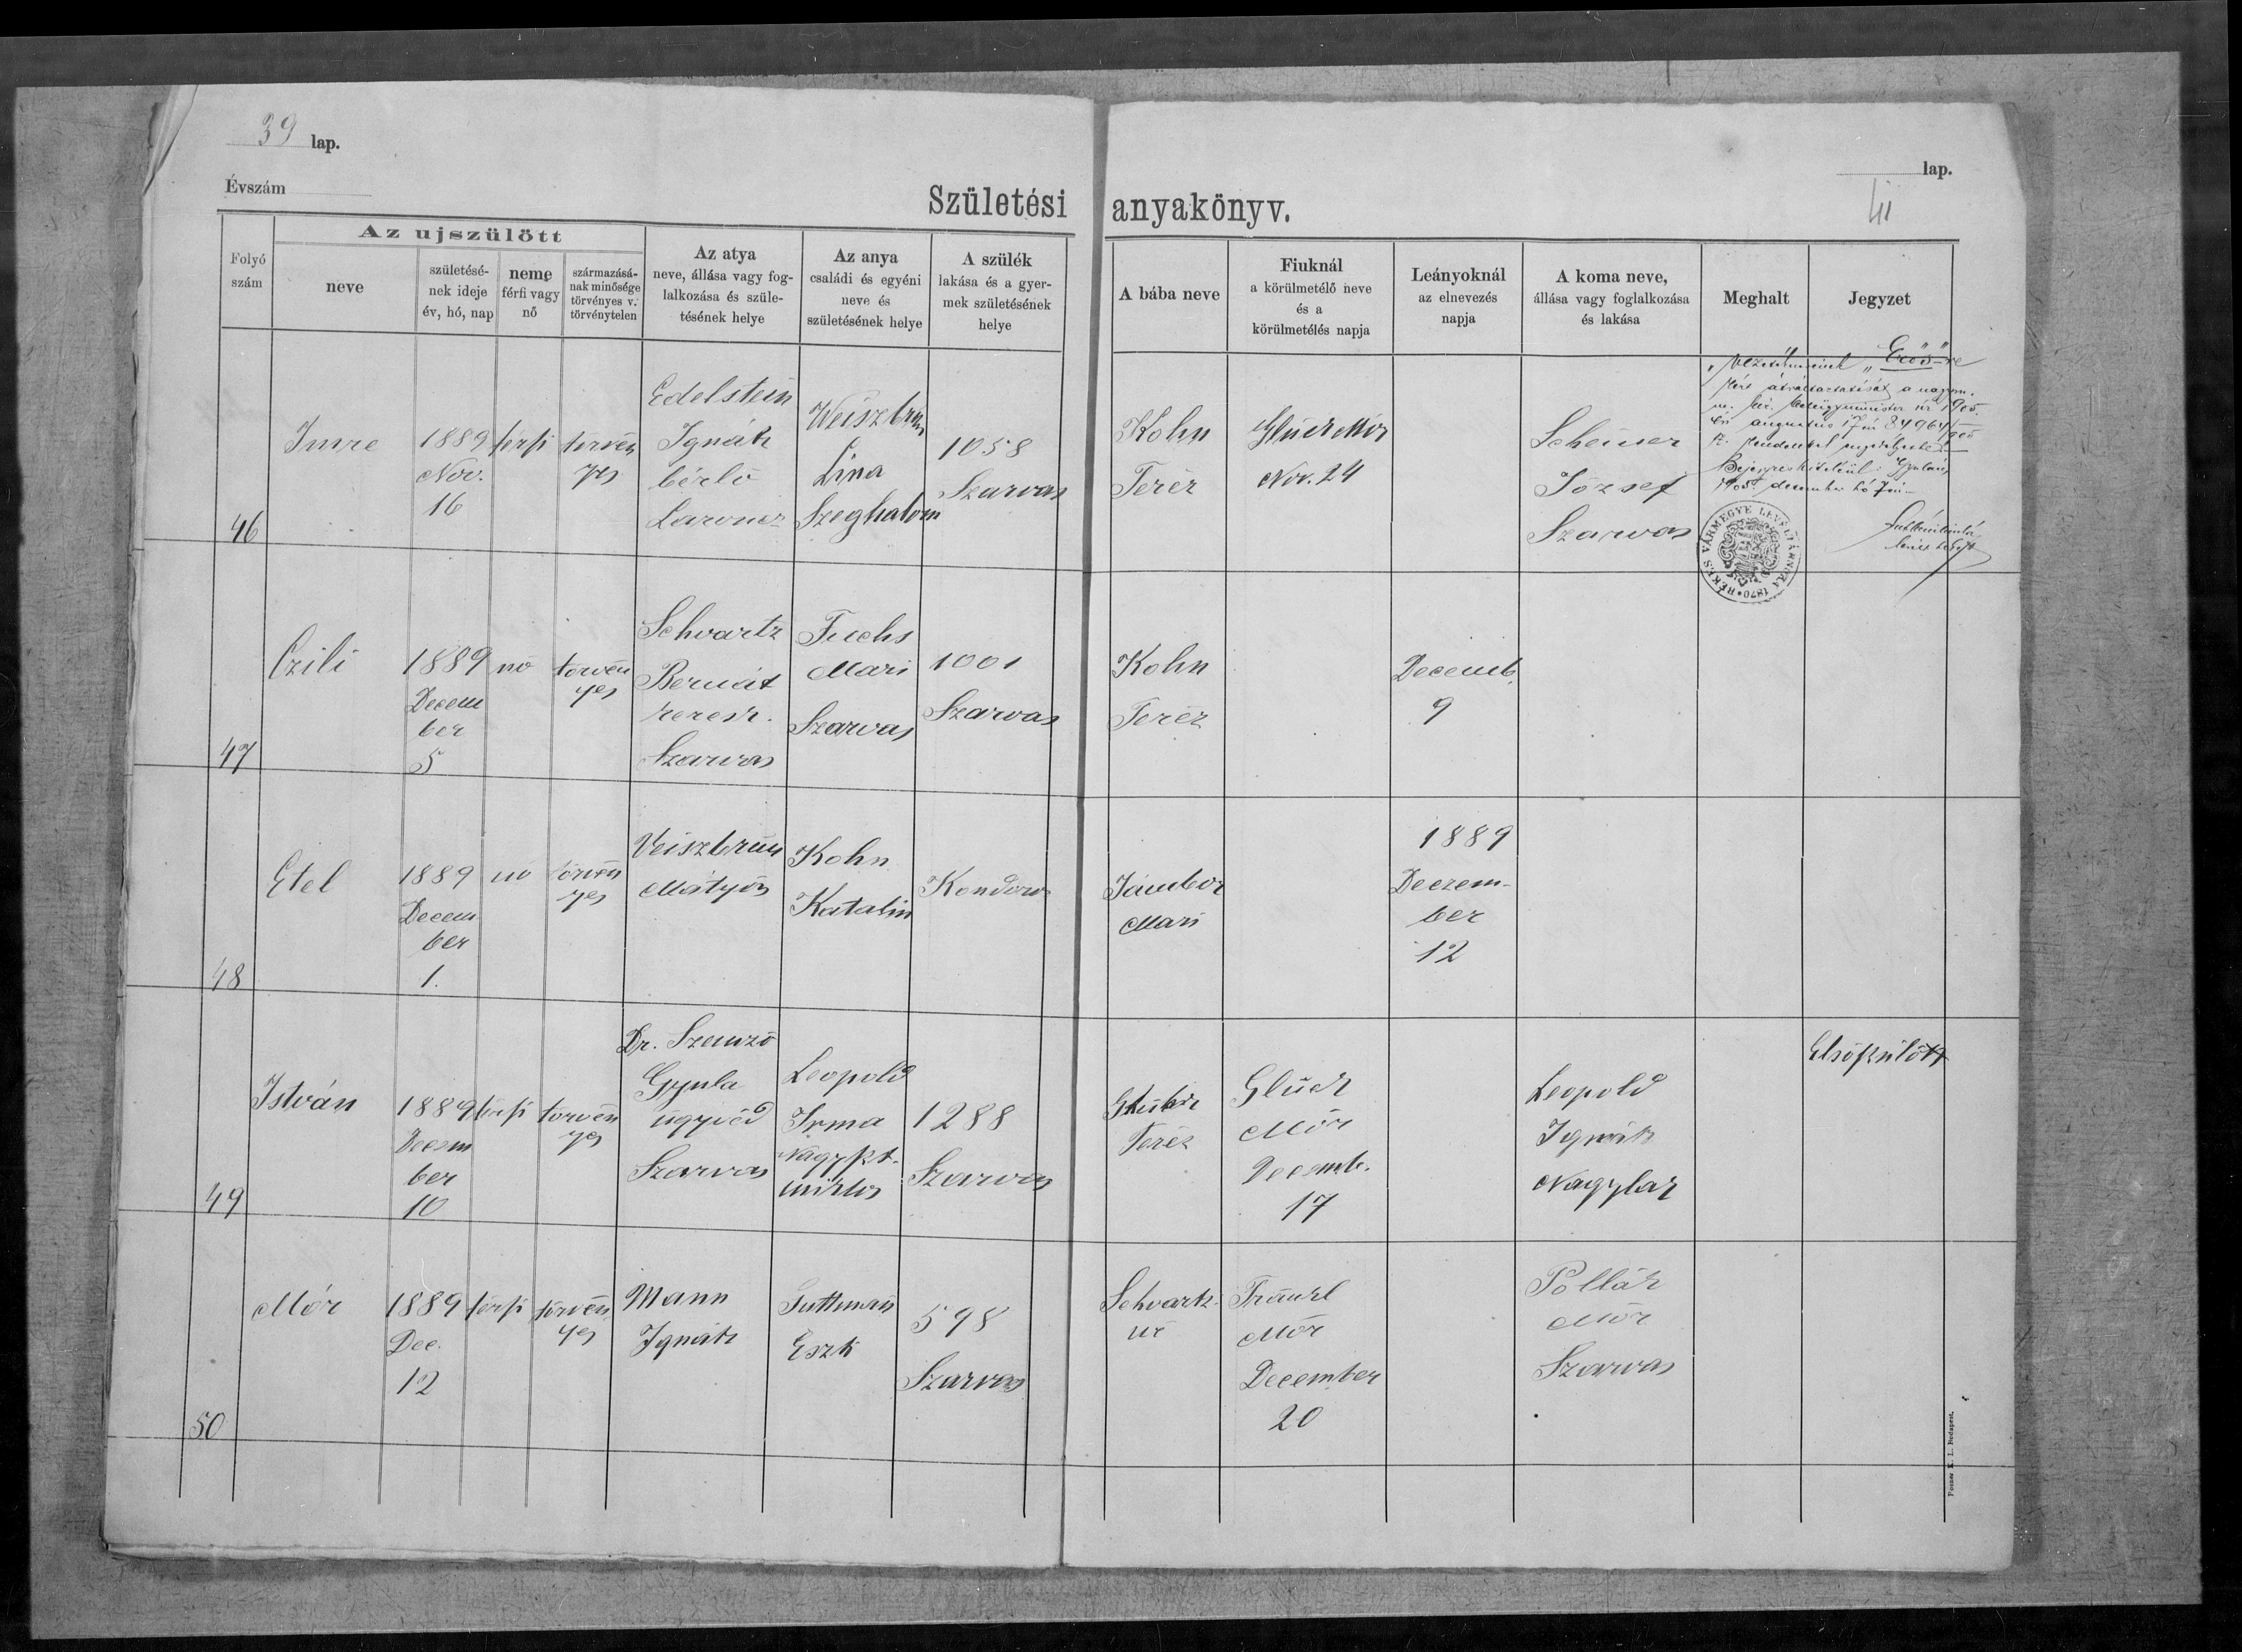 39 lap.
Évszám
Születési anyakönyv.
lap.
Folyó szám
Az ujszülött
neve
születésé-
nek ideje
év, hó, nap
neme
férfi vagy
nő
származásá-
nak minősége
törvényes v.
törvénytelen
Az atya
neve, állása vagy fog-
lalkozása és szüle-
tésének helye
Az anya
családi és egyéni
neve és
születésének helye
A szülék
lakása és a gyer-
mek születésének
helye
A bába neve
Fiuknál
a körülmetélő neve
és a
körülmetélés napja
Leányoknál
az elnevezés
napja
A koma neve,
állása vagy foglalkozása
és lakása
Meghalt
Jegyzet
46
Imre
1889
Nov.
16
férfi
törvén
yes
Edelstein
Ignátz
bérlő
Weiszbrun
Lina
Szeghalom
1058
Szarvas
Kohn
Teréz
Glück Mór
Nov. 24
Scheiner
József
Szarvas
"Erős"-re
a nagym.
m. kir. belügyminister úr 1905.
évi augusztus 17én 84964/1905
sz.
Gyulán,
1905. december hó 7én
BÉKÉS VÁRMEGYE LEVÉLTÁRNOKA 1870
47
Czili
1889
Decem
ber
5
nő
törvén
yes
Schvartz
Bernát
keresk.
Szarvas
Fuchs
Mari
Szarvas
1001
Szarvas
Kohn
Teréz
Decemb.
9
48
Etel
1889
Decem
ber
1.
nő
törvén
yes
Veiszbrun
Mátyás
Kohn
Katalin
Kondoros
Jámbor
Mari
1889
Deczem-
ber
12
49
István
1889
Decem
ber
10
férfi
törvén
yes
Dr. Szemző
Gyula
ügyvéd
Szarvas
Leopold
Irma
Nagyszt.
miklós
1288
Szarvas
Teréz
Glück
Mór
Decemb.
17
Leopold
Ignátz
Nagylak
Elsőszülött
50
Mór
1889
Dec.
12
férfi
törvén
yes
Mann
Ignátz
Guttman
Eszti
598
Szarvas
Schvartz
né
Fränkl
Mór
December
20
Pollák
Mór
Szarvas
Posner K. L. Budapest.